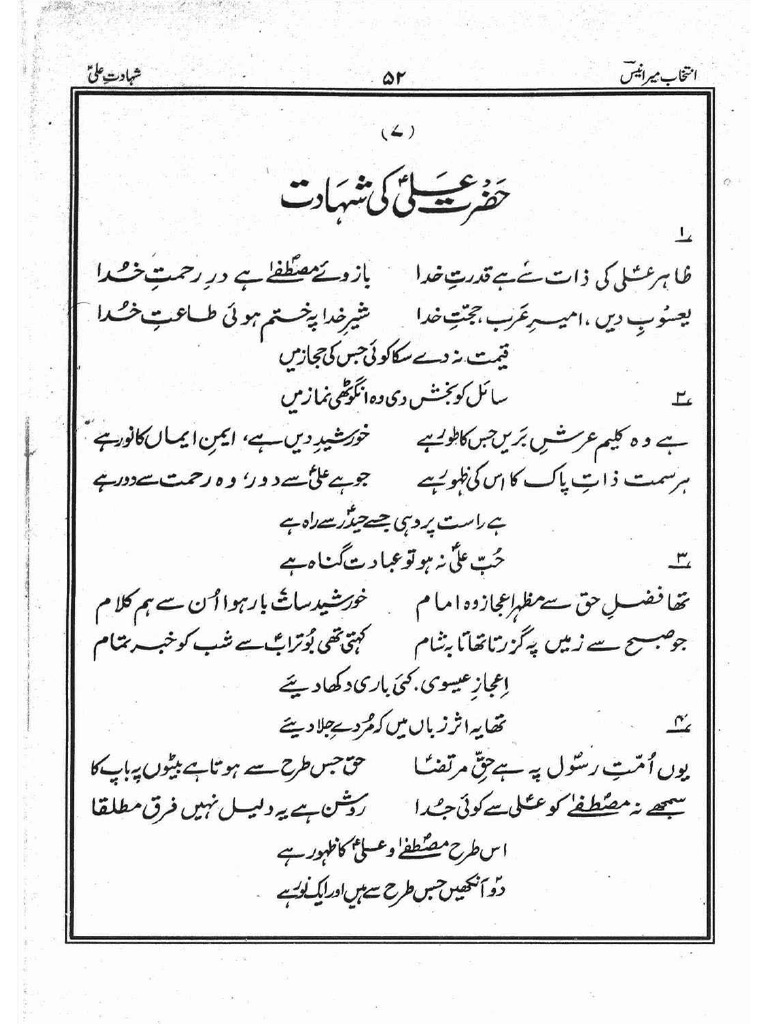 انتخاب میر انیس ۵۲ شہادتِ علیؑ
(۷)
حضرت علیؑ کی شہادت
۱
ظاہر علیؑ کی ذات سے ہے قدرتِ خدا بازوئے مصطفےٰؐ ہے درِ رحمتِ خُدا
یعسُوبِ دیں، امیرِ عَرب، حجّتِ خدا شیرِ خدا پہ ختم ہوئی طاعتِ خُدا
قیمت نہ دے سکا کوئی جس کی حجاز میں
سائل کو بخش دی وہ انگوٹھی نماز میں
۲
ہے وہ کلیم عرشِ بَریں جس کا طور ہے خورشیدِ دیں ہے، ایمنِ ایماں کا نور ہے
ہر سمت ذاتِ پاک کا اس کی ظہور ہے جو ہے علیؑ سے دور، وہ رحمت سے دور ہے
ہے راست پر وہی جسے حیدرؑ سے راہ ہے
حُبِّ علیؑ نہ ہو تو عبادت گناہ ہے
۳
تھا فضلِ حق سے مظہرِ اعجاز وہ امام خورشید سات بار ہوا اُن سے ہم کلام
جو صبح سے زمیں پہ گزرتا تھا تا بہ شام کہتی تھی بُوترابؑ سے شب کو خبر تمام
اِعجازِ عیسوی، کئی باری دکھا دیئے
تھا یہ اثر زباں میں کہ مُردے جِلا دیئے
۴
یوں اُمّتِ رسُولؐ پہ ہے حقِّ مرتضاؑ حق جس طرح سے ہوتا ہے بیٹوں پہ باپ کا
سمجھے نہ مصطفےٰؐ کو علیؑ سے کوئی جُدا روشن ہے یہ دلیل نہیں فرق مطلقا
اس طرح مصطفےٰؐ و علیؑ کا ظہور ہے
دو آنکھیں جس طرح سے ہیں اور ایک نور ہے